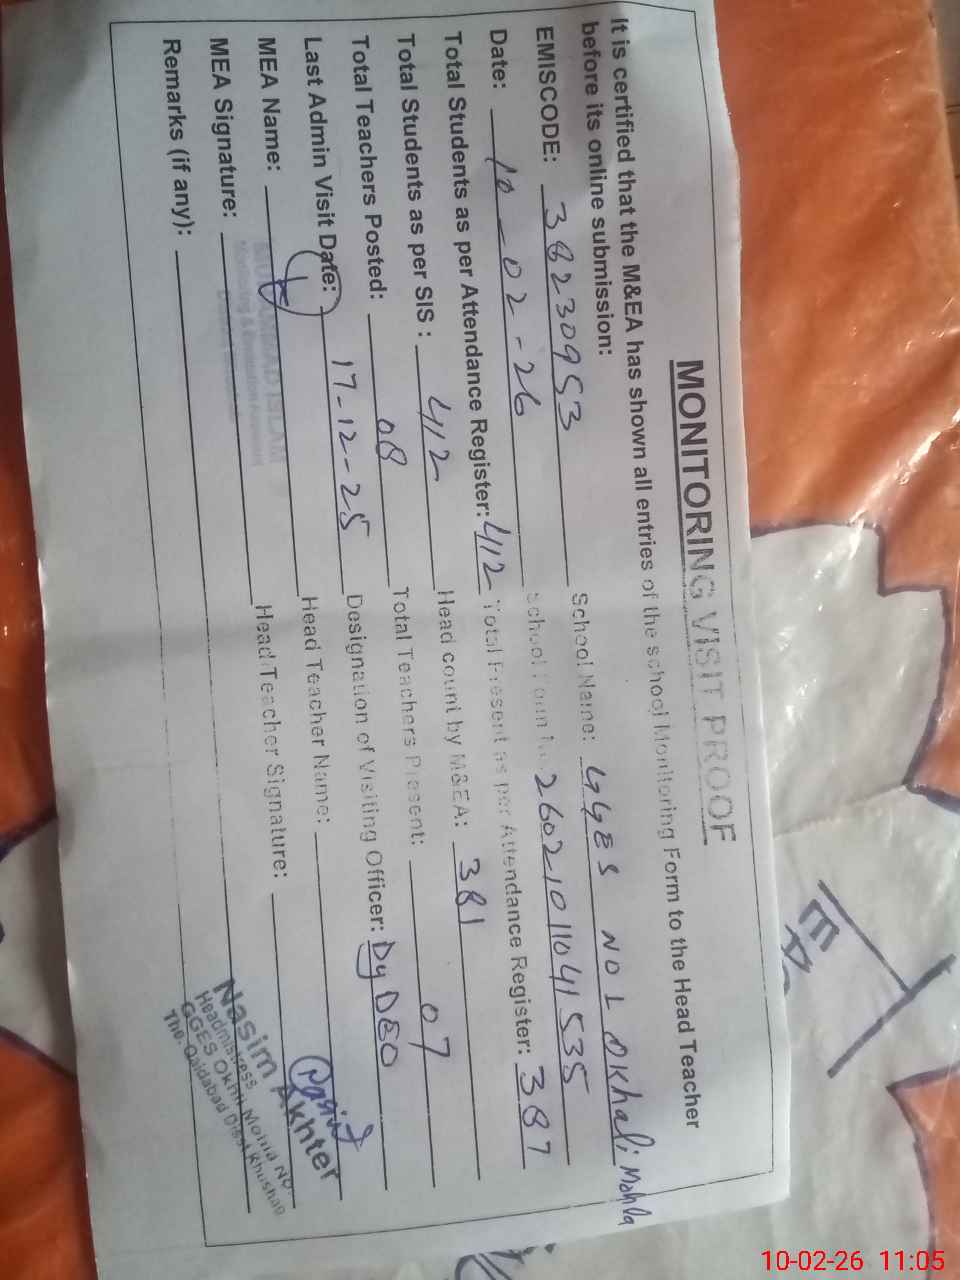 MONITORING VISIT PROOF
It is certified that the M&EA has shown all entries of the school Monitoring Form to the Head Teacher
before its online submission:
EMISCODE: 38230953 School Name: GGES NO 1 OKhali Mohla
Date: 10-02-26 School Form No. 26021011041535
Total Students as per Attendance Register: 412 Total Present as per Attendance Register: 387
Total Students as per SIS : 412 Head count by M&EA: 381
Total Teachers Posted: 08 Total Teachers Present: 07
Last Admin Visit Date: 17-12-25 Designation of Visiting Officer: Dy DEO
MEA Name: Head Teacher Name:
MEA Signature: Head Teacher Signature:
Remarks (if any):
Nasim Akhter
Headmistress
GGES Okhli Mohla No.
The. Qaidabad Disst Khushab
10-02-26 11:05